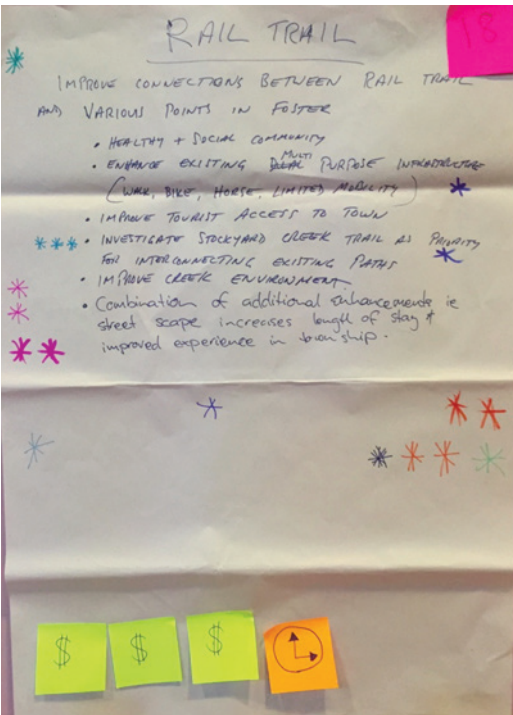 RAIL TRAIL
18
IMPROVE CONNECTIONS BETWEEN RAIL TRAIL
AND VARIOUS POINTS IN FOSTER
• HEALTHY + SOCIAL COMMUNITY
• ENHANCE EXISTING MULTI PURPOSE INFRASTRUCTURE
(WALK, BIKE, HORSE, LIMITED MOBILITY)
• IMPROVE TOURIST ACCESS TO TOWN
• INVESTIGATE STOCKYARD CREEK TRAIL AS PRIORITY
FOR INTERCONNECTING EXISTING PATHS
• IMPROVE CREEK ENVIRONMENT
• Combination of additional enhancements ie
street scape increases length of stay &
improved experience in township.
$ $ $